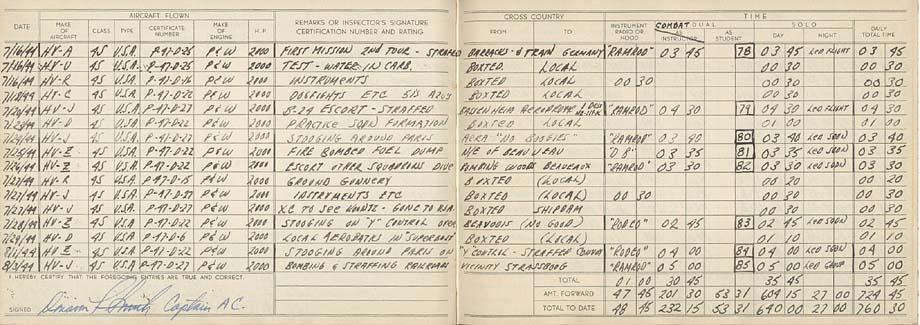 AIRCRAFT FLOWN
CROSS COUNTRY TIME
DATE MAKE OF AIRCRAFT CLASS TYPE CERTIFICATE NUMBER MAKE OF ENGINE H.P. REMARKS OR INSPECTOR'S SIGNATURE CERTIFICATION NUMBER AND RATING FROM TO INSTRUMENT RADIO OR HOOD COMBAT DUAL AS INSTRUCTOR AS STUDENT SOLO DAY NIGHT DAILY TOTAL TIME
7/16/44 HV-A 4S U.S.A. P-47-D-25 P&W 2000 FIRST MISSION 2ND TOUR - STRAFED BARRACKS & TRAIN GERMANY "RAMROD" 03 45 78 03 45 LED FLIGHT 03 45
HV-U 4S U.S.A. P-47-D-25 P&W 2000 TEST - WATER IN CARB. BOXTED LOCAL 00 30 00 30
7/16/44 HV-R 4S U.S.A. P&W 2000 INSTRUMENTS BOXTED LOCAL 00 30 00 30 00 30
7/18/44 4S U.S.A. P-47-D-22 P&W 2000 DOGFIGHTS ETC BOXTED LOCAL 00 30 00 30
7/20/44 HV-J 4S U.S.A. P-47-D-27 P&W 2000 B-24 ESCORT - STRAFFED AERODROME "RAMROD" 04 30 79 04 30 LED FLIGHT 04 30
HV-D 4S U.S.A. P-47-D-22 P&W 2000 PRACTICE SQDN FORMATION BOXTED LOCAL 01 00 01 00
7/24/44 HV-J 4S U.S.A. P-47-D-27 P&W 2000 STOOGING AROUND PARIS AREA "NO BOGIES" "RAMROD" 03 40 80 03 40 LED SQDN 03 40
7/25/44 HV-Z 4S U.S.A. P-47-D-22 P&W 2000 FIRE BOMBED FUEL DUMP OF BEAUVIEAU 03 35 81 03 35 LED SQDN 03 35
7/26/44 HV-Z 4S U.S.A. P-47-D-22 P&W 2000 ESCORT OTHER SQUADRONS DIVE BOMBING WOODS BEAUVEAUX "RAMROD" 03 30 82 03 30 LED SQDN 03 30
7/27/44 HV-R 4S U.S.A. P&W 2000 GROUND GUNNERY BOXTED (LOCAL) 00 20 00 20
7/27/44 HV-J 4S U.S.A. P-47-D-27 P&W 2000 INSTRUMENTS ETC BOXTED (LOCAL) 00 30 00 30 00 30
7/27/44 HV-J 4S U.S.A. P-47-D-27 P&W 2000 XC TO SEE GONE TO BOXTED SHIPDAM 00 30 00 30
7/28/44 HV-Z 4S U.S.A. P-47-D-22 P&W 2000 STOOGING ON "Y" CONTROL OVER BEAUVOIS (NO GOOD) "RODEO" 02 45 83 02 45 LED SQDN 02 45
7/29/44 HV-D 4S U.S.A. P-47-D-6 P&W 2000 LOCAL AEROBATICS IN "SUPERBOLT" BOXTED (LOCAL) 01 10 01 10
8/1/44 HV-Z 4S U.S.A. P-47-D-22 P&W 2000 STOOGING AROUND PARIS ON "Y" CONTROL - STRAFFED CONVOY "RODEO" 04 00 84 04 00 LED SQDN 04 00
8/3/44 HV-J 4S U.S.A. P-47-D-27 P&W 2000 BOMBING & STRAFFING RAILROADS VICINITY STRASSBOURG "RAMROD" 05 00 85 05 00 LED 05 00
I HEREBY CERTIFY THAT THE FOREGOING ENTRIES ARE TRUE AND CORRECT.
TOTAL 01 00 30 45 35 45 35 45
SIGNED Smith Captain A.C.
AMT. FORWARD 47 45 201 30 53 31 604 15 27 00 724 45
TOTAL TO DATE 48 45 232 15 53 31 640 00 27 00 760 30